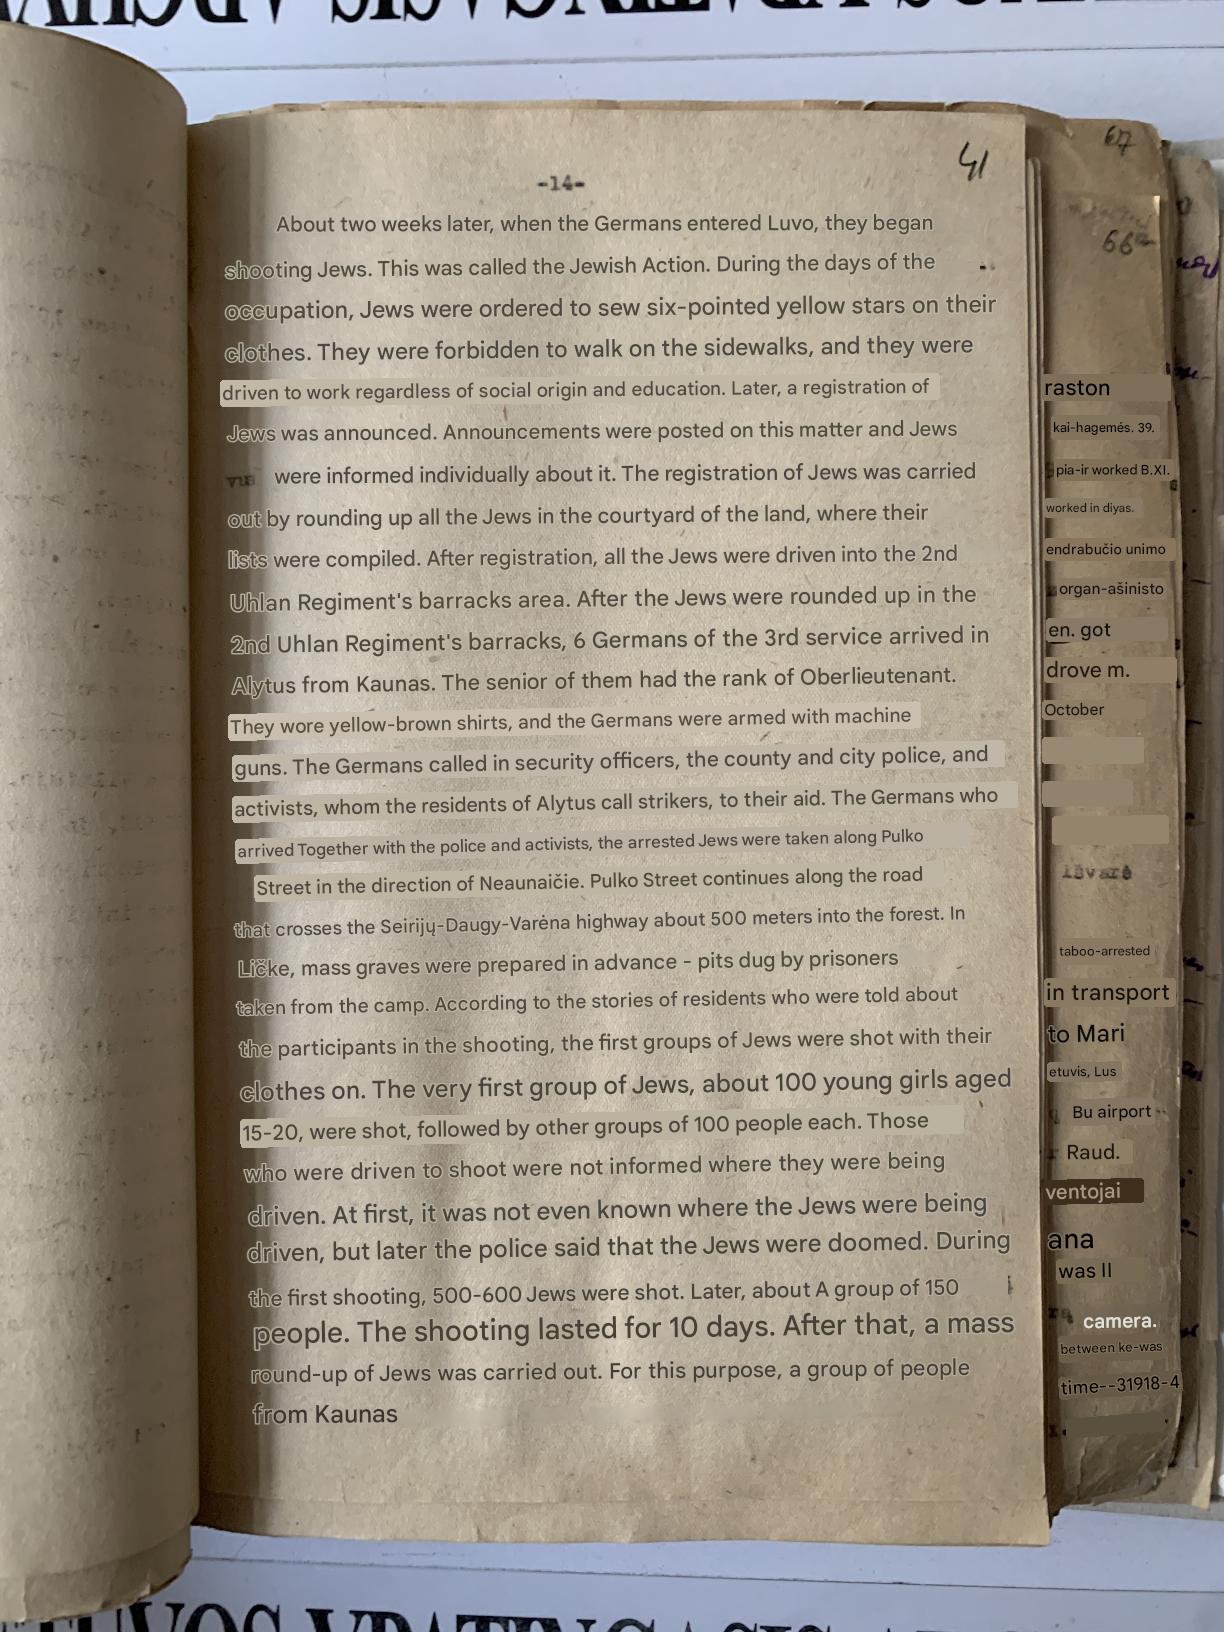 -14-
41
About two weeks later, when the Germans entered Luvo, they began
shooting Jews. This was called the Jewish Action. During the days of the
occupation, Jews were ordered to sew six-pointed yellow stars on their
clothes. They were forbidden to walk on the sidewalks, and they were
driven to work regardless of social origin and education. Later, a registration of
Jews was announced. Announcements were posted on this matter and Jews
were informed individually about it. The registration of Jews was carried
out by rounding up all the Jews in the courtyard of the land, where their
lists were compiled. After registration, all the Jews were driven into the 2nd
Uhlan Regiment's barracks area. After the Jews were rounded up in the
2nd Uhlan Regiment's barracks, 6 Germans of the 3rd service arrived in
Alytus from Kaunas. The senior of them had the rank of Oberlieutenant.
They wore yellow-brown shirts, and the Germans were armed with machine
guns. The Germans called in security officers, the county and city police, and
activists, whom the residents of Alytus call strikers, to their aid. The Germans who
arrived Together with the police and activists, the arrested Jews were taken along Pulko
Street in the direction of Neaunaičie. Pulko Street continues along the road
that crosses the Seirijų-Daugy-Varėna highway about 500 meters into the forest. In
Ličke, mass graves were prepared in advance - pits dug by prisoners
taken from the camp. According to the stories of residents who were told about
the participants in the shooting, the first groups of Jews were shot with their
clothes on. The very first group of Jews, about 100 young girls aged
15-20, were shot, followed by other groups of 100 people each. Those
who were driven to shoot were not informed where they were being
driven. At first, it was not even known where the Jews were being
driven, but later the police said that the Jews were doomed. During
the first shooting, 500-600 Jews were shot. Later, about A group of 150
people. The shooting lasted for 10 days. After that, a mass
round-up of Jews was carried out. For this purpose, a group of people
from Kaunas
67
66
raston
kai-hagemės. 39.
pia-ir worked B.XI.
worked in diyas.
endrabučio unimo
organ-ašinisto
en. got
drove m.
October
išvarė
taboo-arrested
in transport
to Mari
etuvis, Lus
Bu airport
Raud.
ventojai
ana
was II
camera.
between ke-was
time--31918-4